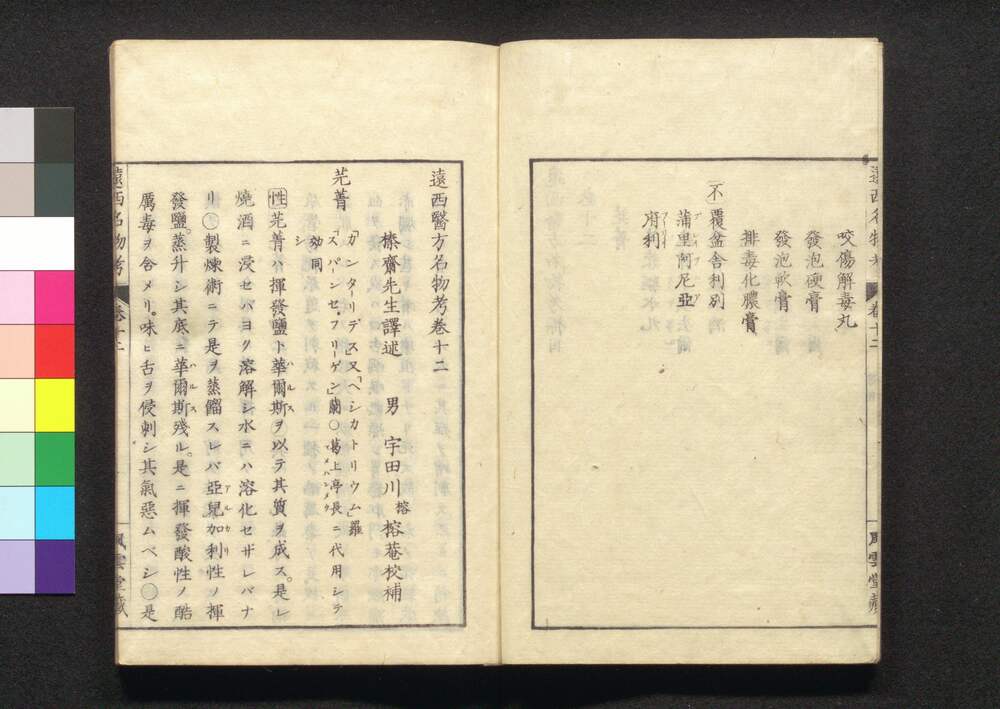 咬傷解毒丸
發泡硬膏
發泡軟膏
排毒化膿膏
不 覆盆舎利別
蒲里阿尼亞
府利
遠西名物考 卷十二
風雲堂藏
遠西醫方名物考卷十二
榛齋先生譯述 男 宇田川榕 榕菴校補
芫菁 「カンターリデス」又「ヘシカトリウム」羅
「スパーンセ・フリーゲン」蘭○葛上亭長ニ代用シテ
効同シ
性 芫菁ハ揮發鹽ト華爾斯ヲ以テ其質ヲ成ス。是レ
燒酒ニ浸セバヨク溶解シ水ニハ溶化セザレバナ
リ○製煉術ニテ是ヲ蒸餾スレバ亞兒加利性ノ揮
發鹽。蒸升シ其底ニ華爾斯殘ル。是ニ揮發酸性ノ酷
厲毒ヲ含メリ。味ヒ舌ヲ侵刺シ其氣惡ムベシ○是
遠西名物考 卷十二
風雲堂藏